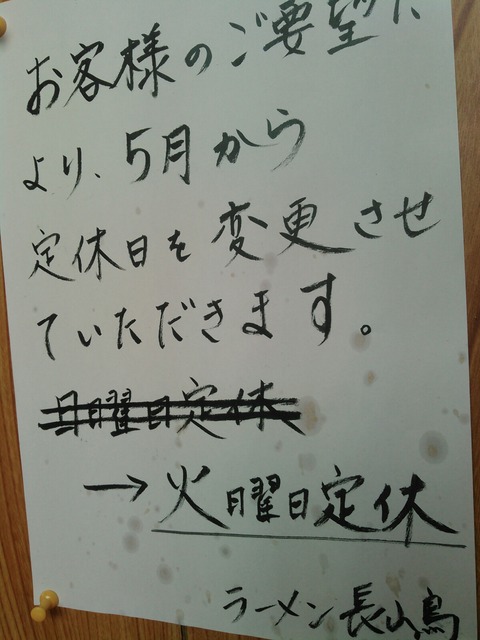 お客様のご要望に
より、5月から
定休日を変更させ
ていただきます。
日曜日定休
→火曜日定休
ラーメン長山鳥